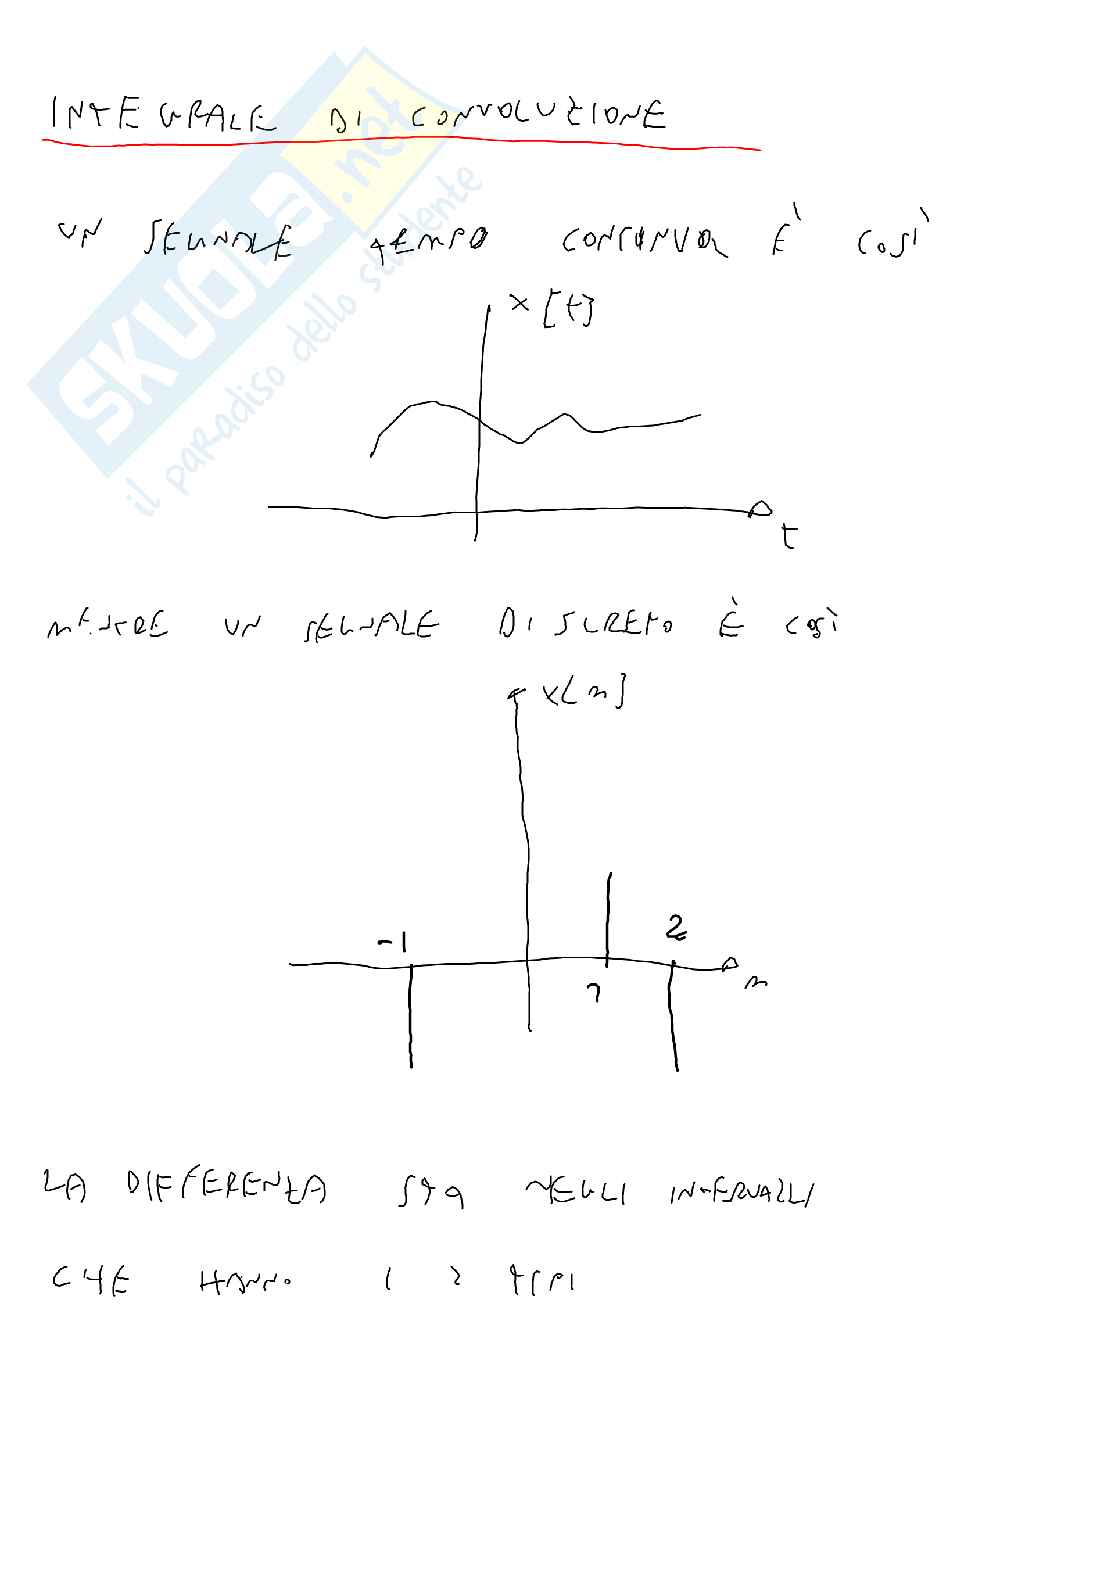 INTEGRALE DI CONVOLUZIONE
UN SEGNALE TEMPO CONTINUO È COSÌ
x[t]
t
MENTRE UN SEGNALE DISCRETO È COSÌ
x[n]
-1
2
1
n
LA DIFFERENZA STA NEGLI INTERVALLI
CHE HANNO I 2 TIPI
SKUOLA.net
il paradiso dello studente